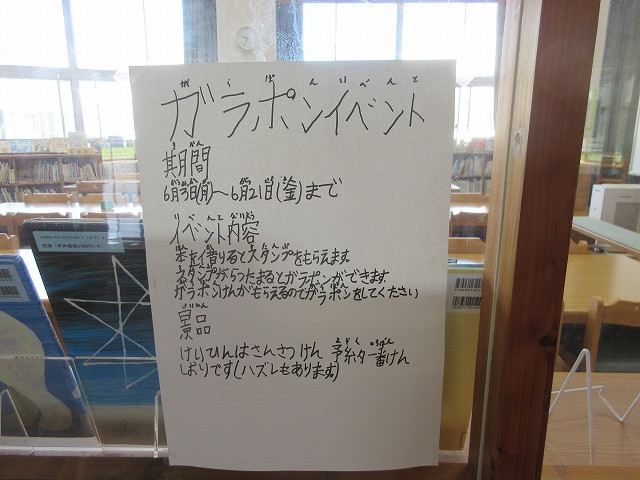 ガラポンイベント
期間
6月3日(月)〜6月21日(金)まで
イベント内容
本を借りるとスタンプをもらえます。
スタンプが5つたまるとガラポンができます。
ガラポンけんがもらえるのでガラポンをしてください
景品
けいひんはさんさつけん 予約一番けん
しおりです(ハズレもあります。)